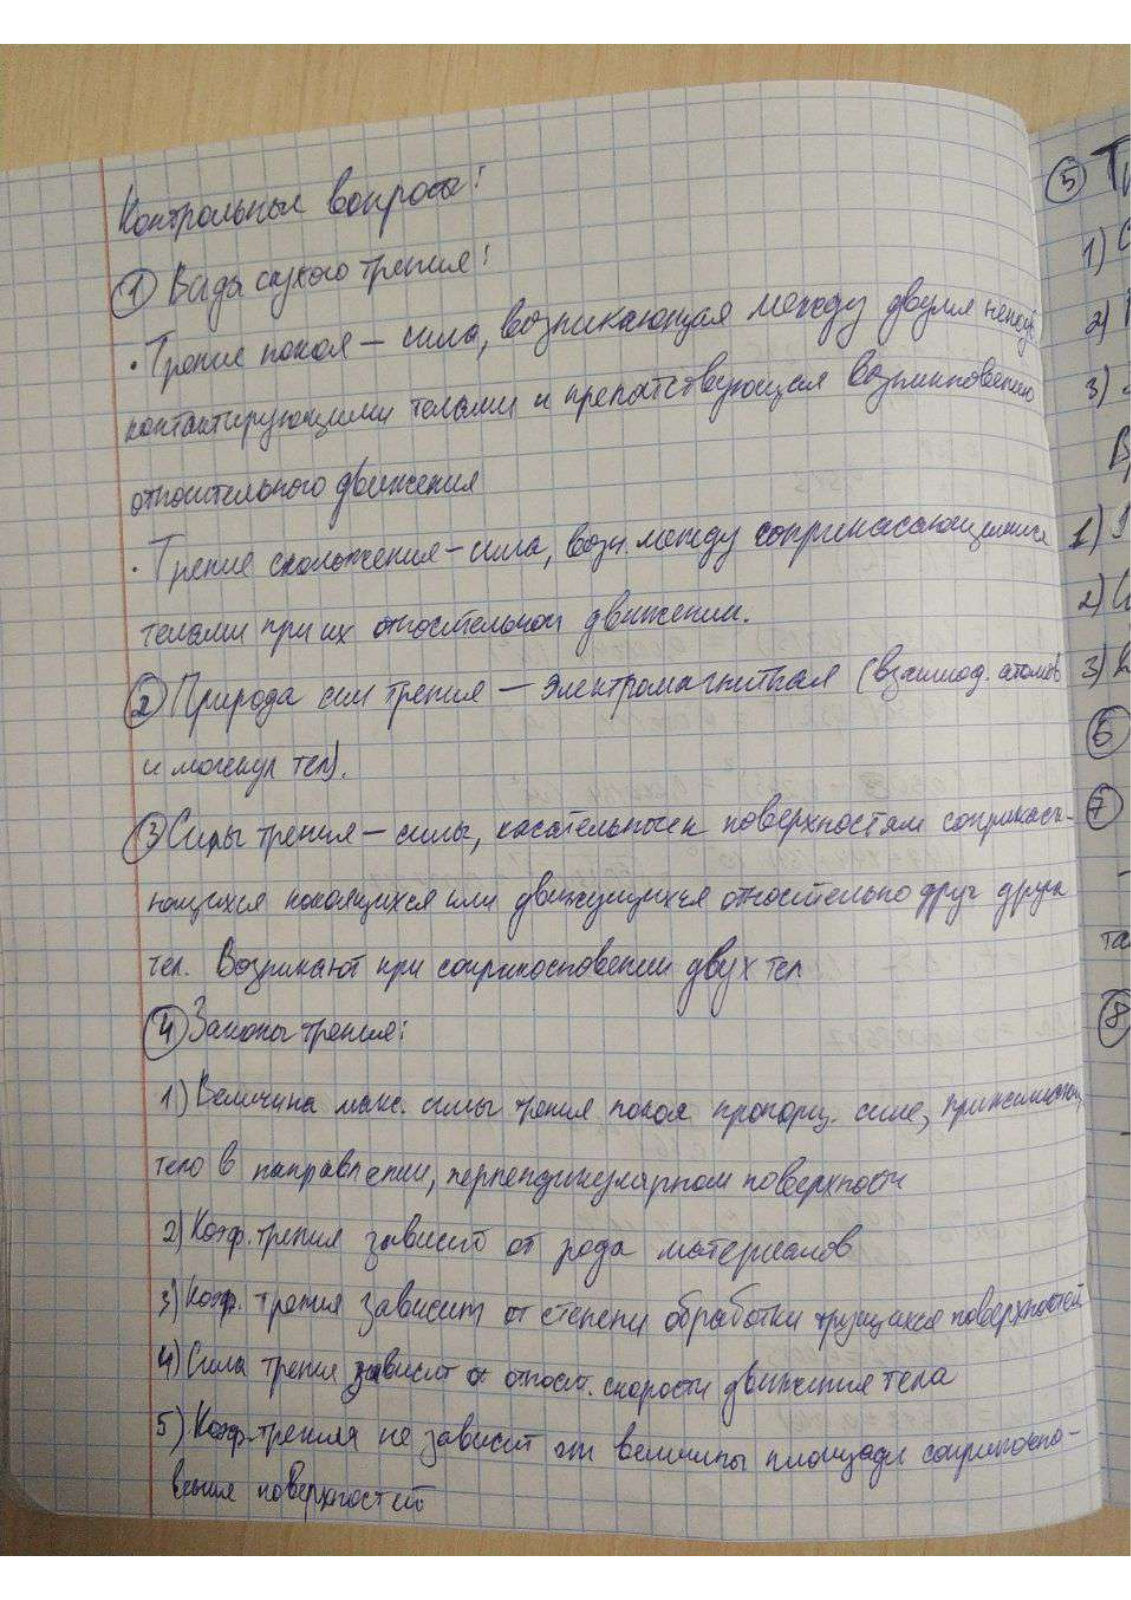 Контрольные вопросы:
① Виды сухого трения:
• Трение покоя – сила, возникающая между двумя неподв.
контактирующими телами и препятствующая возникновению
относительного движения
• Трение скольжения – сила, возн. между соприкасающимися
телами при их относительном движении.
② Природа сил трения – электромагнитная (взаимод. атомов
и молекул тел).
③ Силы трения – силы, касательные к поверхностям соприкаса-
ющихся покоящихся или движущихся относительно друг друга
тел. Возникают при соприкосновении двух тел
④ Законы трения:
1) Величина макс. силы трения покоя пропорц. силе, прижимающ.
тело в направлении, перпендикулярном поверхности
2) Коэф. трения зависит от рода материалов
3) Коэф. трения зависит от степени обработки трущихся поверхностей
4) Сила трения зависит от относит. скорости движения тела
5) Коэф. трения не зависит от величины площади соприкосно-
вения поверхностей
⑤
1)
2)
3)
1)
2)
3)
⑥
⑦
та
⑧